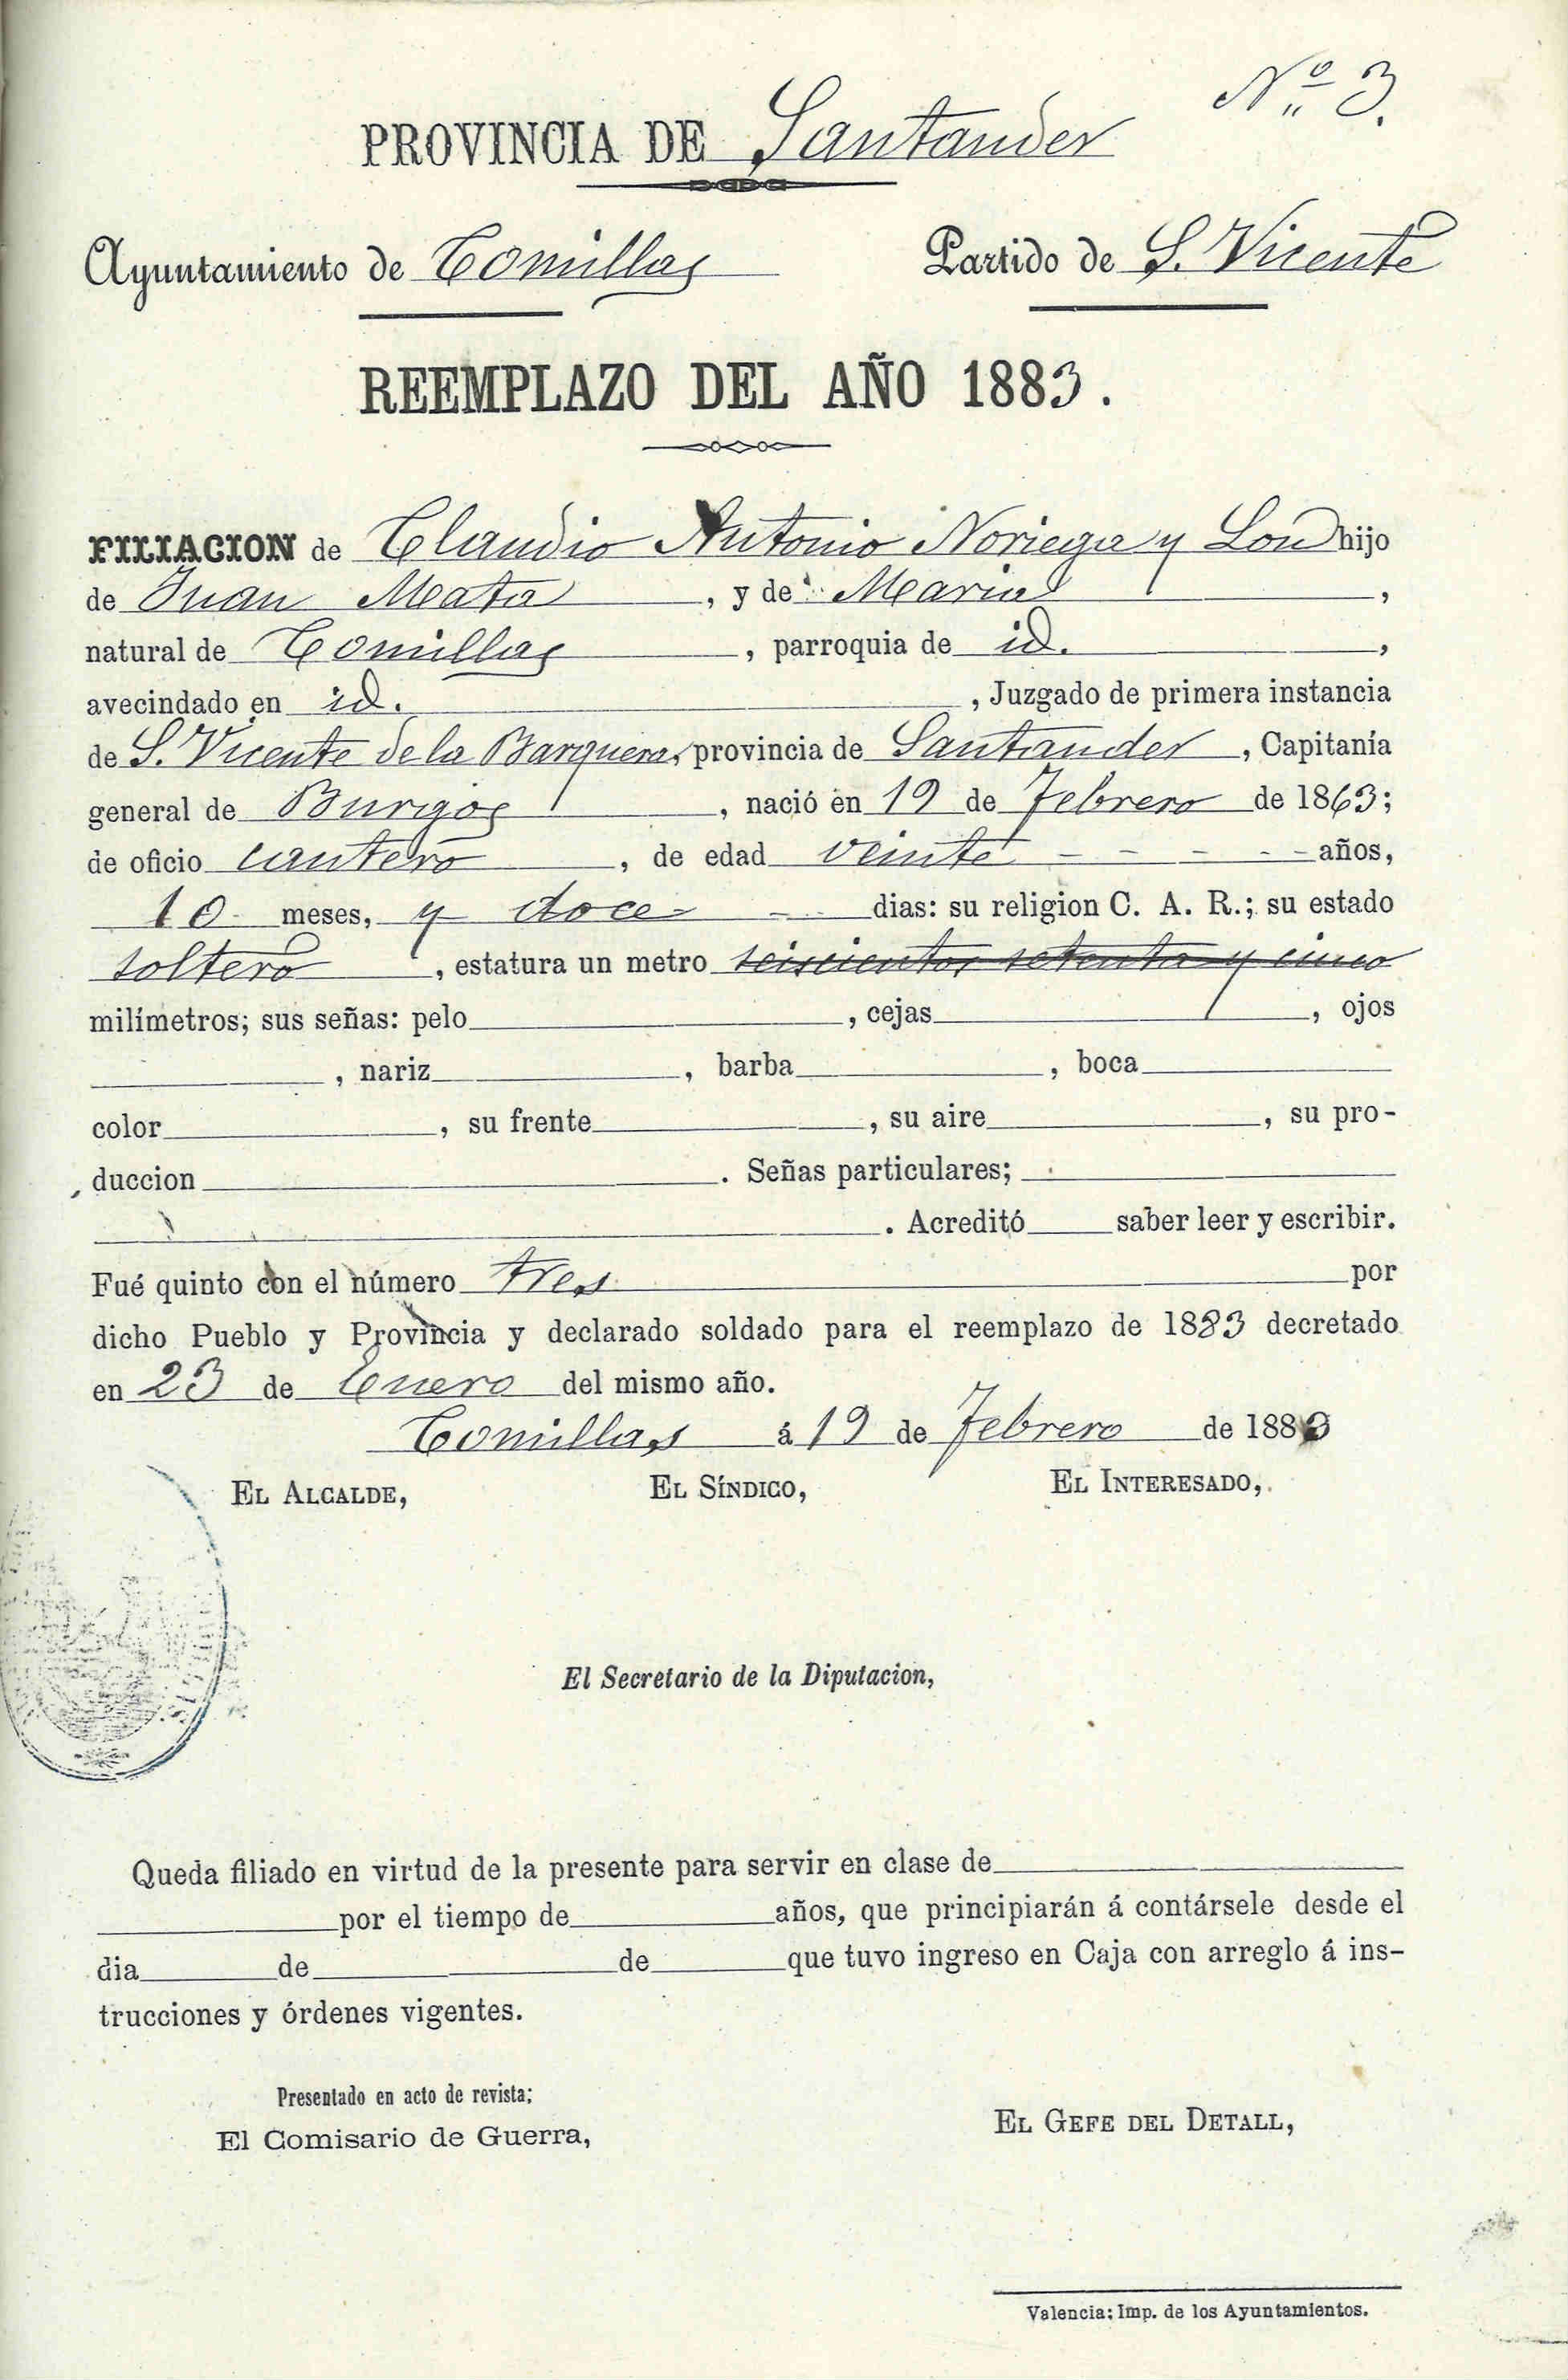 Nº 3.
PROVINCIA DE Santander
Ayuntamiento de Comillas Partido de S. Vicente
REEMPLAZO DEL AÑO 1883.
FILIACION de Claudio Antonio Noriega y Lon hijo
de Juan Mata, y de Maria,
natural de Comillas, parroquia de id.,
avecindado en id., Juzgado de primera instancia
de S. Vicente de la Barquera, provincia de Santander, Capitanía
general de Burgos, nació en 19 de Febrero de 1863;
de oficio cantero, de edad veinte - - - - - años,
10 meses, y doce - dias: su religion C. A. R.; su estado
soltero, estatura un metro seiscientos setenta y cinco
milímetros; sus señas: pelo, cejas, ojos
, nariz, barba, boca
color, su frente, su aire, su pro-
duccion. Señas particulares;
. Acreditó saber leer y escribir.
Fué quinto con el número tres por
dicho Pueblo y Provincia y declarado soldado para el reemplazo de 1883 decretado
en 23 de Enero del mismo año.
Comillas á 19 de Febrero de 1883
EL ALCALDE, EL SÍNDICO, EL INTERESADO,
El Secretario de la Diputacion,
Queda filiado en virtud de la presente para servir en clase de
por el tiempo de años, que principiarán á contársele desde el
dia de de que tuvo ingreso en Caja con arreglo á ins-
trucciones y órdenes vigentes.
Presentado en acto de revista:
El Comisario de Guerra,
EL GEFE DEL DETALL,
Valencia: Imp. de los Ayuntamientos.